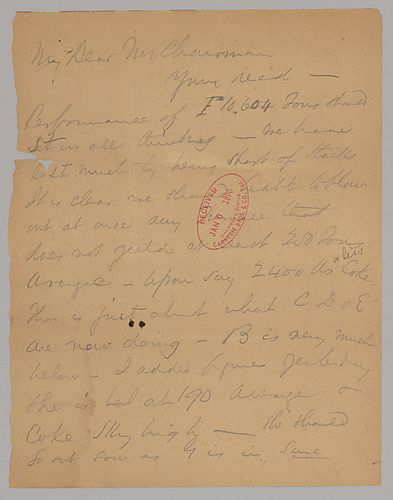 My Dear Mr Chairman
Yours recd —
Performance of F 10,604 Tons should
Set us all thinking — We have
lost much by being short of Stacks
It is clear we should be able to blow
out at once any that
does not yield at least 250 Tons
Average — upon say 2400 lbs Coke
less
This is just about what C D & E
are now doing — B is very much
below — I added figures yesterday
She is bad at 190 Average &
Coke Sky high — She should
Go out soon as is in, Sure
RECEIVED
JAN 6 1900
CARNEGIE BROS & CO.